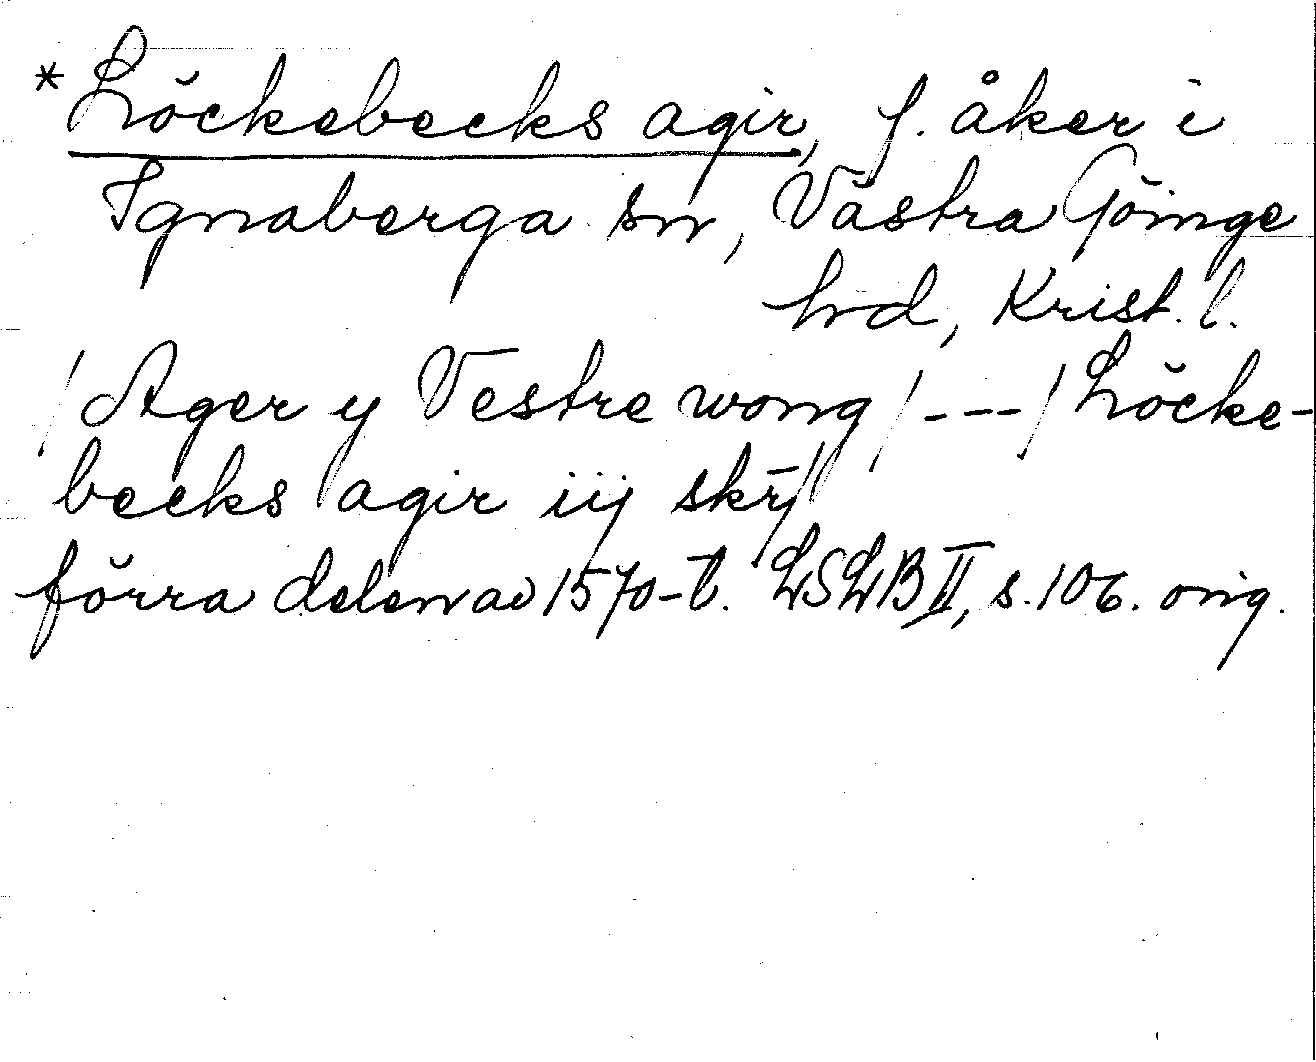 *Löckebecks agir, f. åker i
Ignaberga sn, Västra Göinge
hrd, Krist. l.
/Ager y Vestre wong/---/Löcke-
becks agir iij skr̄/
förra delen av 1570-t. LSLB II, s. 106. orig.